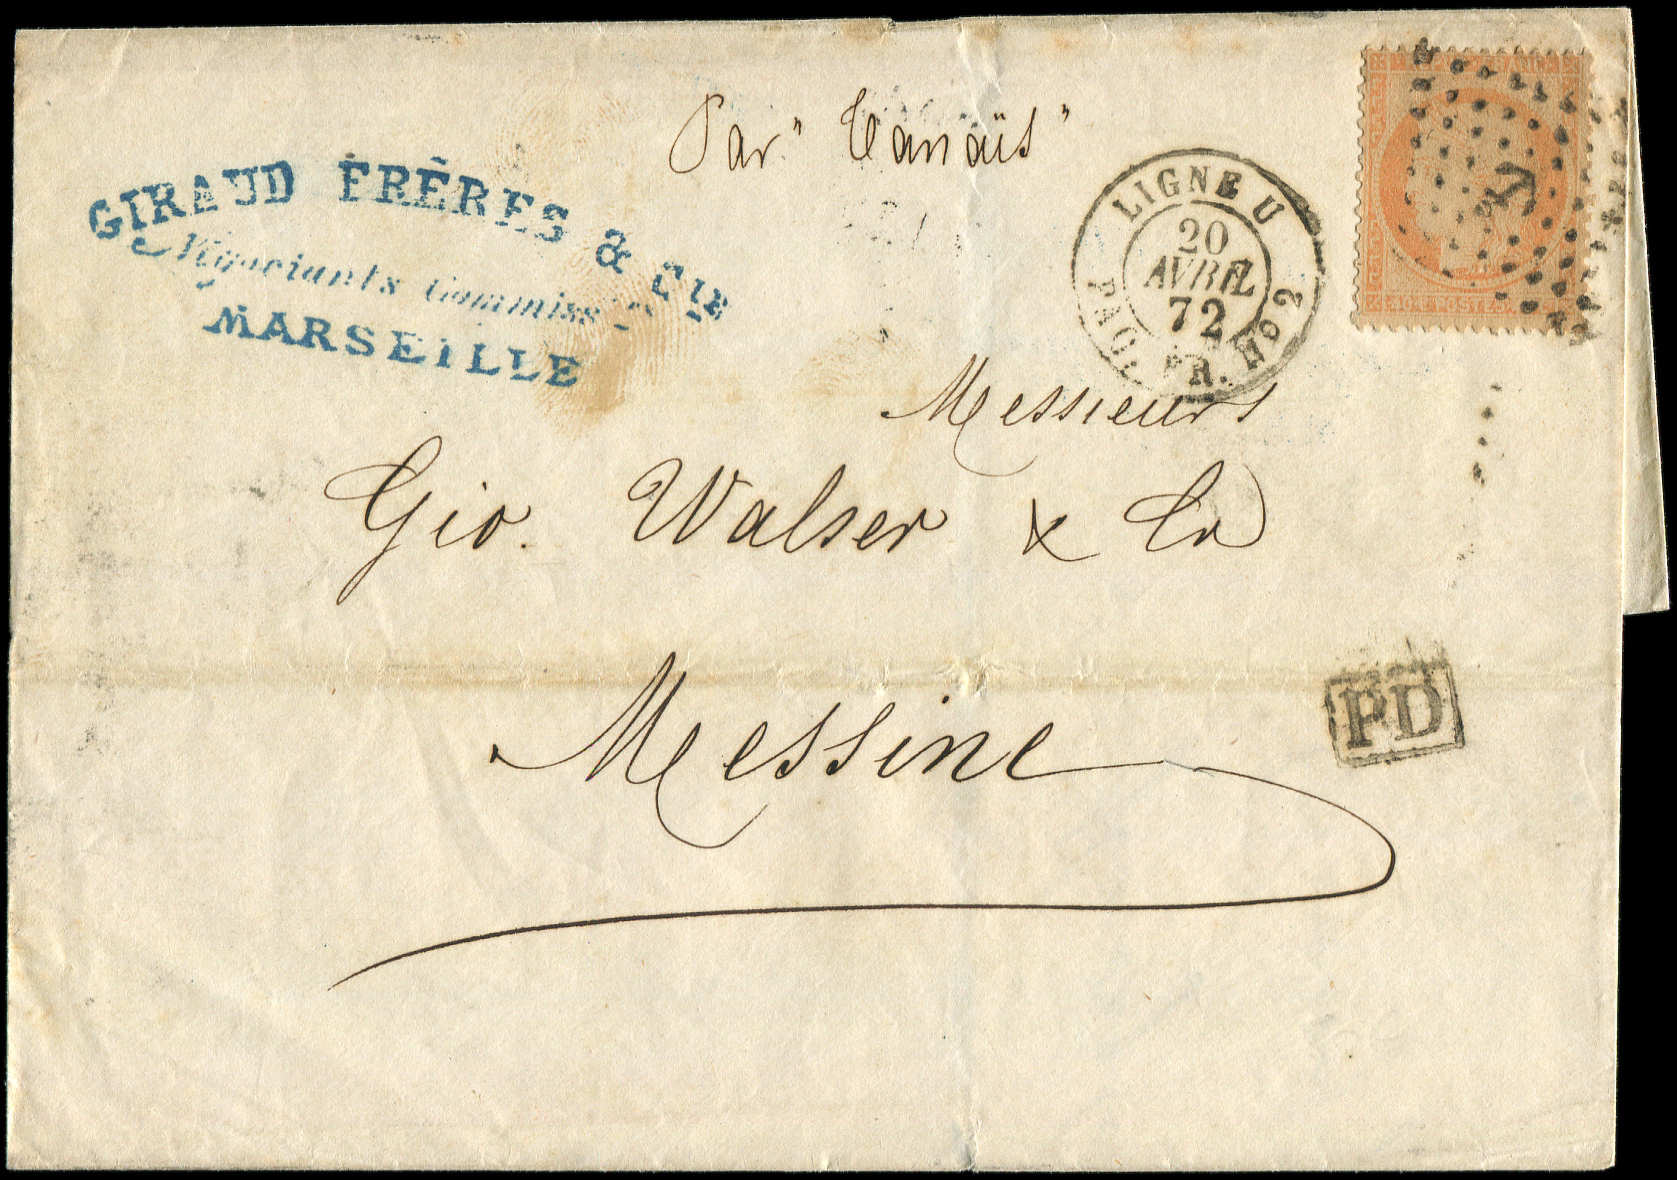 Par "Tanaïs"
GIRAUD FRÈRES & CIE
Négociants Commiss
MARSEILLE
LIGNE U
PAQ. FR. No 2
20
AVRIL
72
40 POSTES
Messieurs
Gio. Walser & Co
Messine
PD